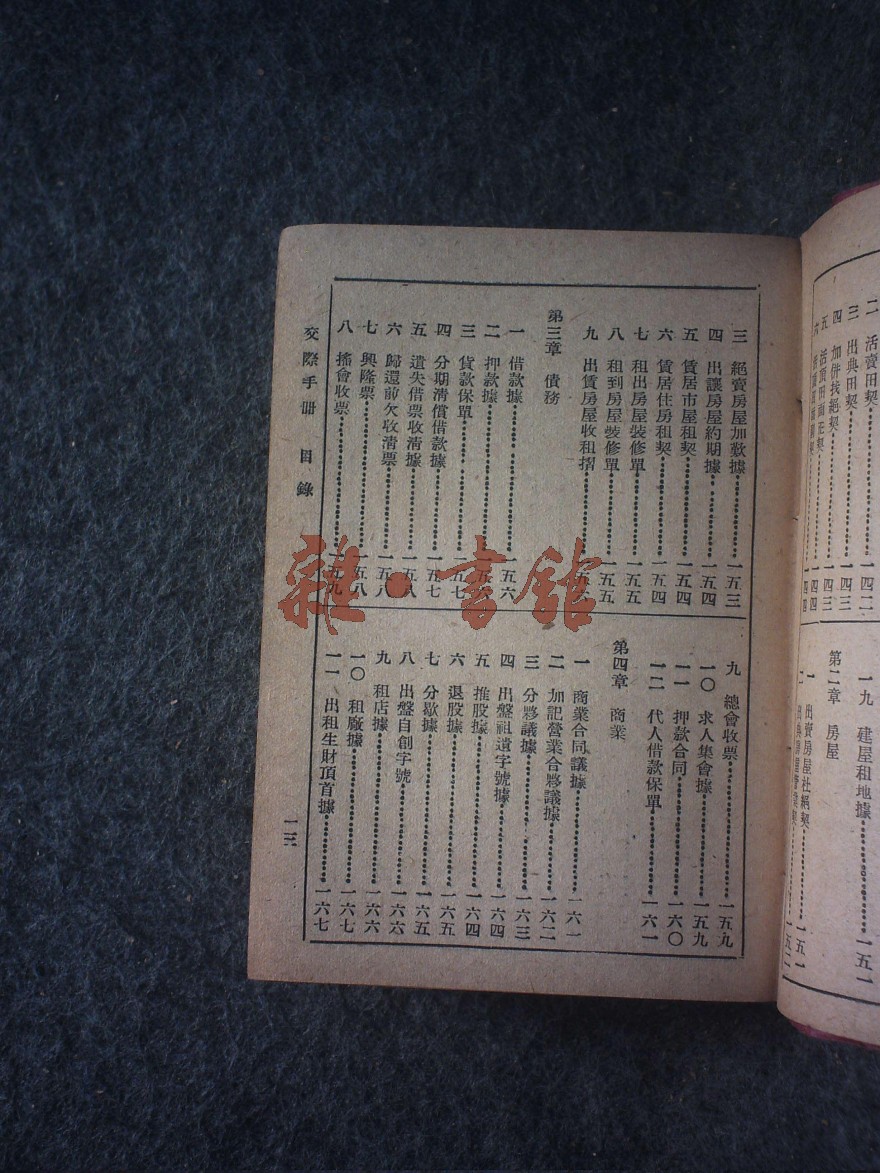 二 活賣田契⋯⋯一四二
三 出典田契⋯⋯一四三
四 加借找絕契⋯⋯一四三
五
六
一九 建屋租地據⋯⋯一五一
第二章 房屋
一 出賣房屋杜絕契⋯⋯一五一
三 絕賣房屋加歎據⋯⋯一五三
四 出讓房屋約期據⋯⋯一五四
五 賃居市屋租契⋯⋯一五四
六 賃居住房租契⋯⋯一五四
七 租出房屋裝修單⋯⋯一五五
八 租到房屋裝修單⋯⋯一五五
九 出賃房屋收租摺⋯⋯一五六
第三章 債務
一 借款據⋯⋯一五六
二 押款據⋯⋯一五六
三 貨款保單⋯⋯一五七
四 分期清償借款據⋯⋯一五七
五 遺失借票收清據⋯⋯一五八
六 歸還前欠收清票⋯⋯一五八
七 興隆票⋯⋯一五八
八 搖會收票⋯⋯一五九
九 總會收票⋯⋯一五九
一〇 求人集會據⋯⋯一五九
一一 押款合同⋯⋯一六〇
一二 代人借款保單⋯⋯一六一
第四章 商業
一 商業合同議據⋯⋯一六一
二 加記營業合夥議據⋯⋯一六二
三 分夥議據⋯⋯一六三
四 出盤祖遺字號據⋯⋯一六四
五 推股據⋯⋯一六四
六 退股據⋯⋯一六五
七 分歇據⋯⋯一六五
八 出盤自創字號⋯⋯一六六
九 租店據⋯⋯一六六
一〇 租廠據⋯⋯一六七
一一 出租生財頂首據⋯⋯一六七
交際手册 目錄
雜·書館